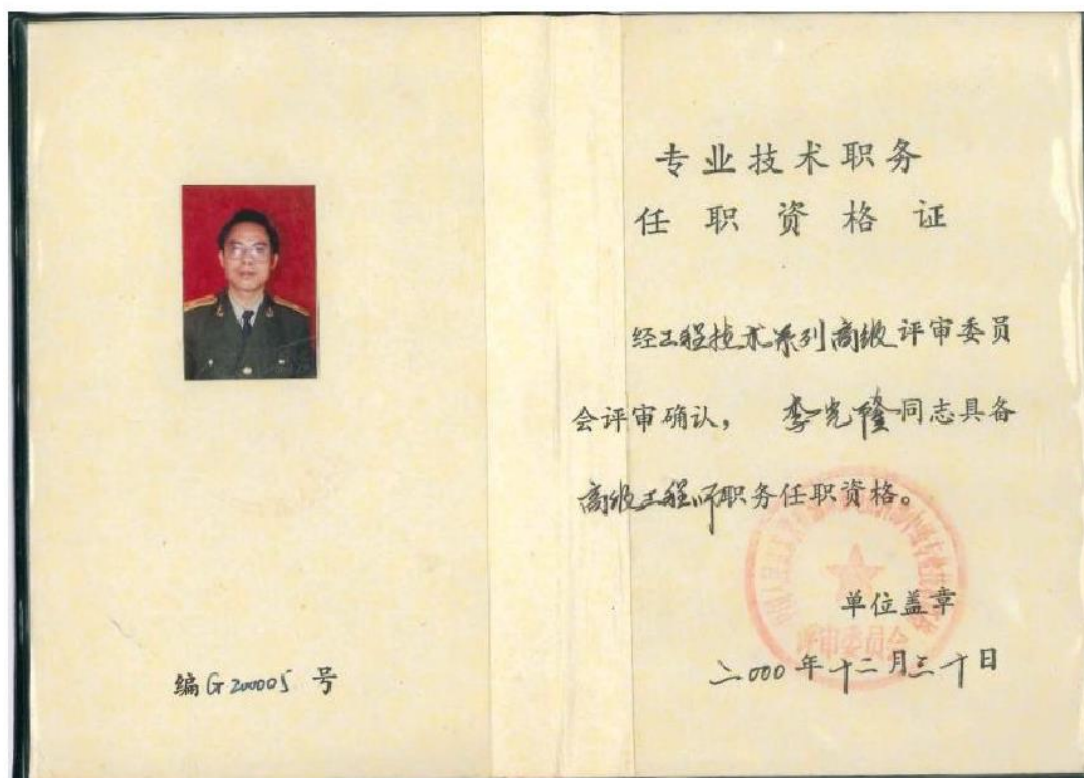 编G200005 号
专业技术职务
任职资格证
经工程技术系列高级评审委员
会评审确认， 李光隆同志具备
高级工程师职务任职资格。
单位盖章
评审委员会
二000年十二月三十日